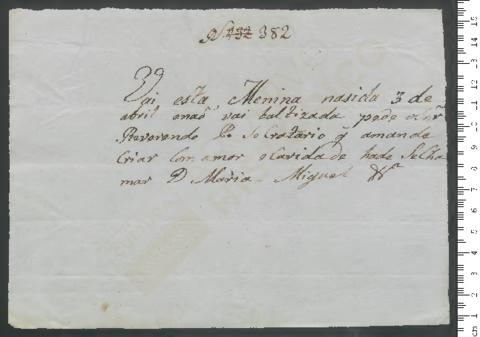 N 382
Vai esta Menina nasida 3 de
abril enaõ vai baltizada pede o Snr
Reverendo Pe Socratario q̃ amande
Criar Com amor e Caridade hade Se Cha
mar D Maria Miguel